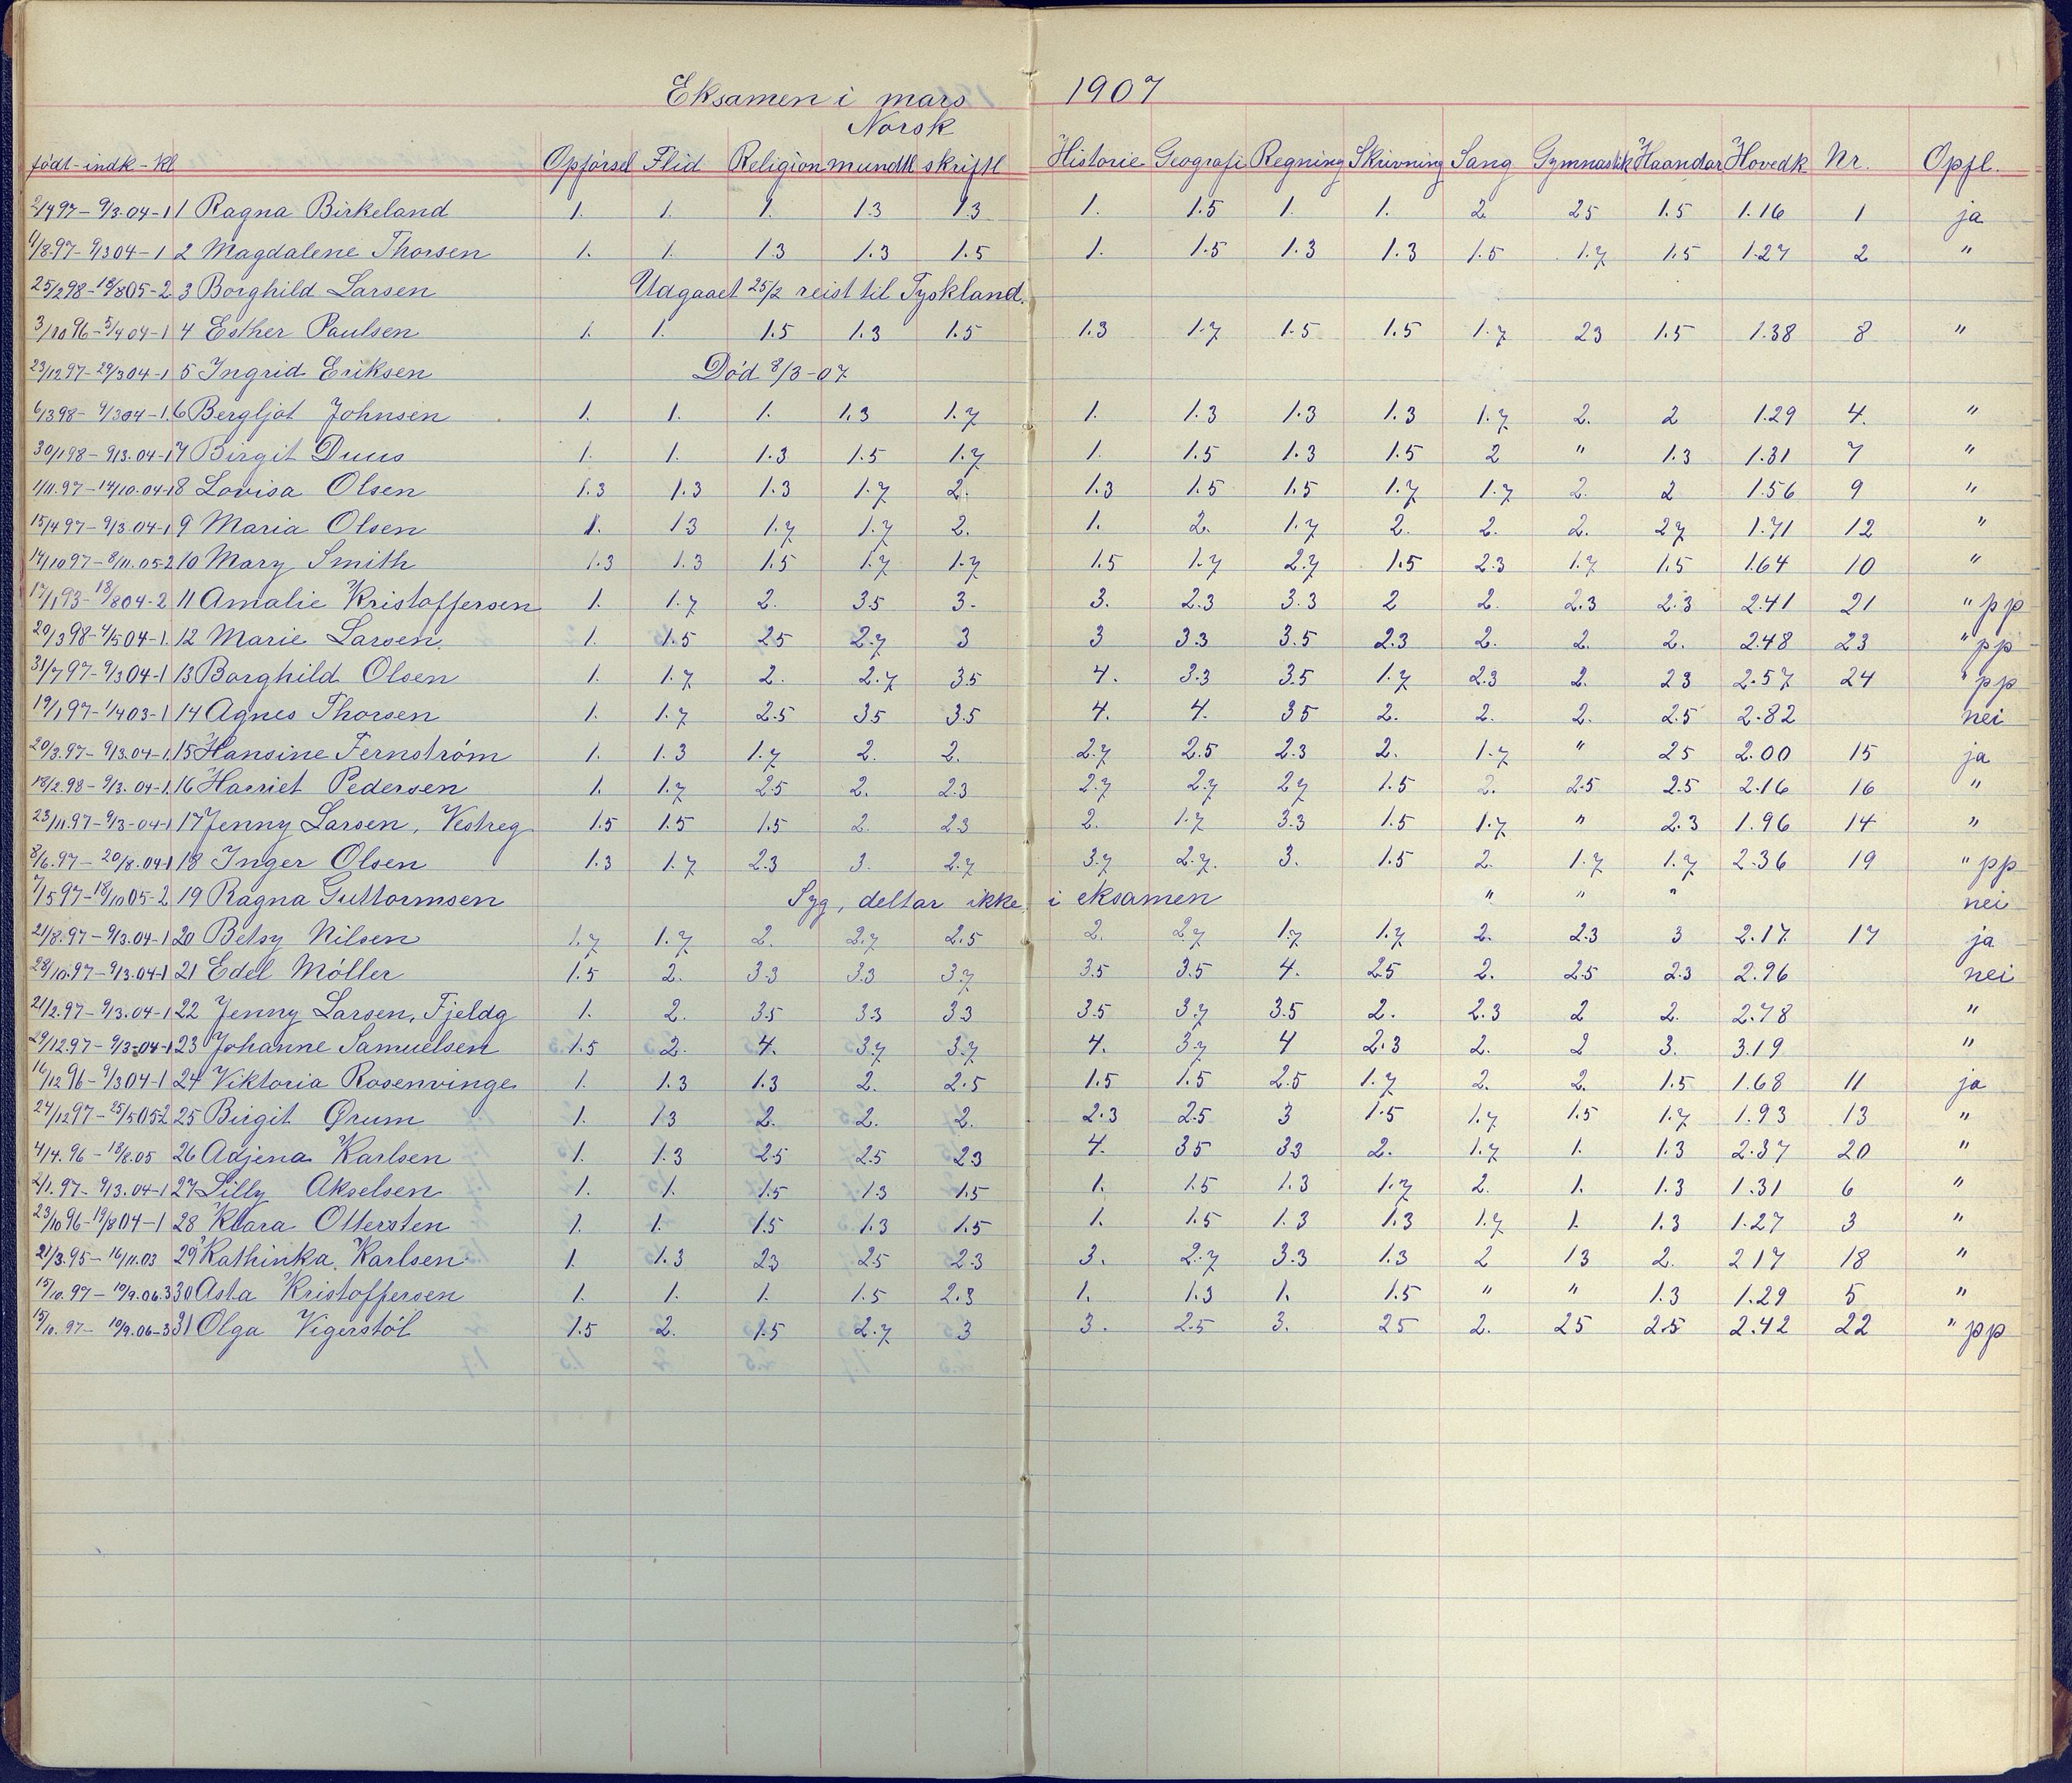 Eksamen i mars 1907
Norsk
født - indk - kl Opførsel Flid Religion mundtl skriftl Historie Geografi Regning Skrivning Sang Gymnastik Haandar Hovedk Nr. Oppl.
2/4 97 - 9/3.04 - 1 1 Ragna Birkeland 1. 1. 1. 1.3 1.3 1. 1.5 1. 1. 2. 25 1.5 1.16 1 ja
/8.97 - 9/3 04 - 1 2 Magdalene Thorsen 1. 1. 1.3 1.3 1.5 1. 1.5 1.3 1.3 1.5 1.7 1.5 1.27 2 "
25/2 98 - 18/8 05 - 2 3 Borghild Larsen Udgaaet 25/2 reist til Tyskland.
3/10 96 - 5/4 04 - 1 4 Esther Paulsen 1. 1. 1.5 1.3 1.5 1.3 1.7 1.5 1.5 1.7 23 1.5 1.38 8 "
23/12 97 - 29/3 04 - 1 5 Ingrid Eriksen Død 8/3 - 07
6/3 98 - 9/3 04 - 1. 6 Bergljot Johnsen 1. 1. 1. 1.3 1.7 1. 1.3 1.3 1.3 1.7 2. 2 1.29 4. "
30/1 98 - 9/3.04 - 1 7 Birgit Duus 1. 1. 1.3 1.5 1.7 1. 1.5 1.3 1.5 2 " 1.3 1.31 7 "
1/11.97 - 14/10.04 - 1 8 Lovisa Olsen 1.3 1.3 1.3 1.7 2. 1.3 1.5 1.5 1.7 1.7 2. 2 1.56 9 "
15/4 97 - 9/3.04 - 1 9 Maria Olsen 1. 13 1.7 1.7 2. 1. 2. 1.7 2. 2. 2. 27 1.71 12 "
14/10 97 - 8/11.05 - 2 10 Mary Smith 1.3 1.3 1.5 1.7 1.7 1.5 1.7 2.7 1.5 2.3 1.7 1.5 1.64 10 "
17/1 93 - 18/8 04 - 2 11 Amalie Kristoffersen 1. 1.7 2. 3.5 3. 3. 2.3 3.3 2 2. 2.3 2.3 2.41 21 " pp
20/3 98 - 4/5 04 - 1. 12 Marie Larsen. 1. 1.5 25 2.7 3 3 3.3 3.5 2.3 2. 2. 2. 2.48 23 " pp
31/7 97 - 9/3 04 - 1 13 Borghild Olsen 1. 1.7 2. 2.7 3.5 4. 3.3 3.5 1.7 2.3 2. 23 2.57 24 " pp
19/1 97 - 1/4 03 - 1 14 Agnes Thorsen 1. 1.7 2.5 35 3.5 4. 4. 35 2. 2. 2. 2.5 2.82 nei
20/3.97 - 9/3.04 - 1. 15 Hansine Fernstrøm 1. 1.3 1.7 2. 2. 2.7 2.5 2.3 2. 1.7 " 25 2.00 15 ja
18/2.98 - 9/3.04 - 1. 16 Harriet Pedersen 1. 1.7 25 2. 2.3 2.7 2.7 27 1.5 2. 2.5 2.5 2.16 16 "
23/11.97 - 9/3 - 04 - 1 17 Jenny Larsen, Vestreg 1.5 1.5 1.5 2. 23 2. 1.7 3.3 1.5 1.7 " 2.3 1.96 14 "
8/6.97 - 20/8.04 - 1 18 Inger Olsen 1.3 1.7 2.3 3. 2.7 3.7 2.7. 3. 1.5 2. 1.7 1.7 2.36 19 " pp
7/5 97 - 18/10 05 - 2 19 Ragna Guttormsen Syg, deltar ikke i eksamen " " " nei
21/8.97 - 9/3.04 - 1 20 Betsy Nilsen 1.7 1.7 2. 2.7 2.5 2. 2.7 1.7 1.7 2. 2.3 3 2.17. 17 ja
28/10.97 - 9/3.04 - 1 21 Edel Møller 1.5 2. 3.3 3.3 3.7 3.5 3.5 4. 2.5 2. 2.5 2.3 2.96 nei
21/2.97 - 9/3.04 - 1 22 Jenny Larsen, Fjeldg 1. 2. 3.5 3.3 33 3.5 3.7 3.5 2. 2.3 2 2. 2.78 "
29/12.97 - 9/3 - 04 - 1 23 Johanne Samuelsen 1.5 2. 4. 3.7 3.7 4. 3.7 4 2.3 2. 2 3. 3.19 "
16/12 96 - 9/3 04 - 1 24 Viktoria Rosenvinge 1. 1.3 1.3 2. 2.5 1.5 1.5 2.5 1.7 2. 2. 1.5 1.68 11 ja
24/12 97 - 25/5 05 2 25 Birgit Ørum 1. 1.3 2. 2. 2. 2.3 2.5 3 1.5 1.7 1.5 1.7 1.93 13 "
4/4.96 - 18/8.05 26 Adjena Karlsen 1. 1.3 2.5 2.5 23 4. 35 33 2. 1.7 1. 1.3 2.37 20 "
2/1.97 - 9/3.04 - 1 27 Lilly Akselsen 1. 1. 1.5 1.3 1.5 1. 1.5 1.3 1.7 2. 1. 1.3 1.31 6 "
23/10 96 - 19/8 04 - 1 28 Klara Ottersten 1. 1. 1.5 1.3 1.5 1. 1.5 1.3 1.3 1.7 1. 1.3 1.27 3 "
21/3.95 - 16/11.03 29 Kathinka Karlsen 1. 1.3 23 25 2.3 3. 2.7 3.3 1.3 2 13 2. 217 18 "
15/10.97 - 10/9.06.3 30 Asta Kristoffersen 1. 1. 1. 1.5 2.3 1. 1.3 1. 1.5 " " 1.3 1.29 5 "
15/10.97 - 10/9.06 - 3 31 Olga Vigerstøl 1.5 2. 1.5 2.7 3 3. 2.5 3. 25 2. 25 2.5 2.42 22 " pp